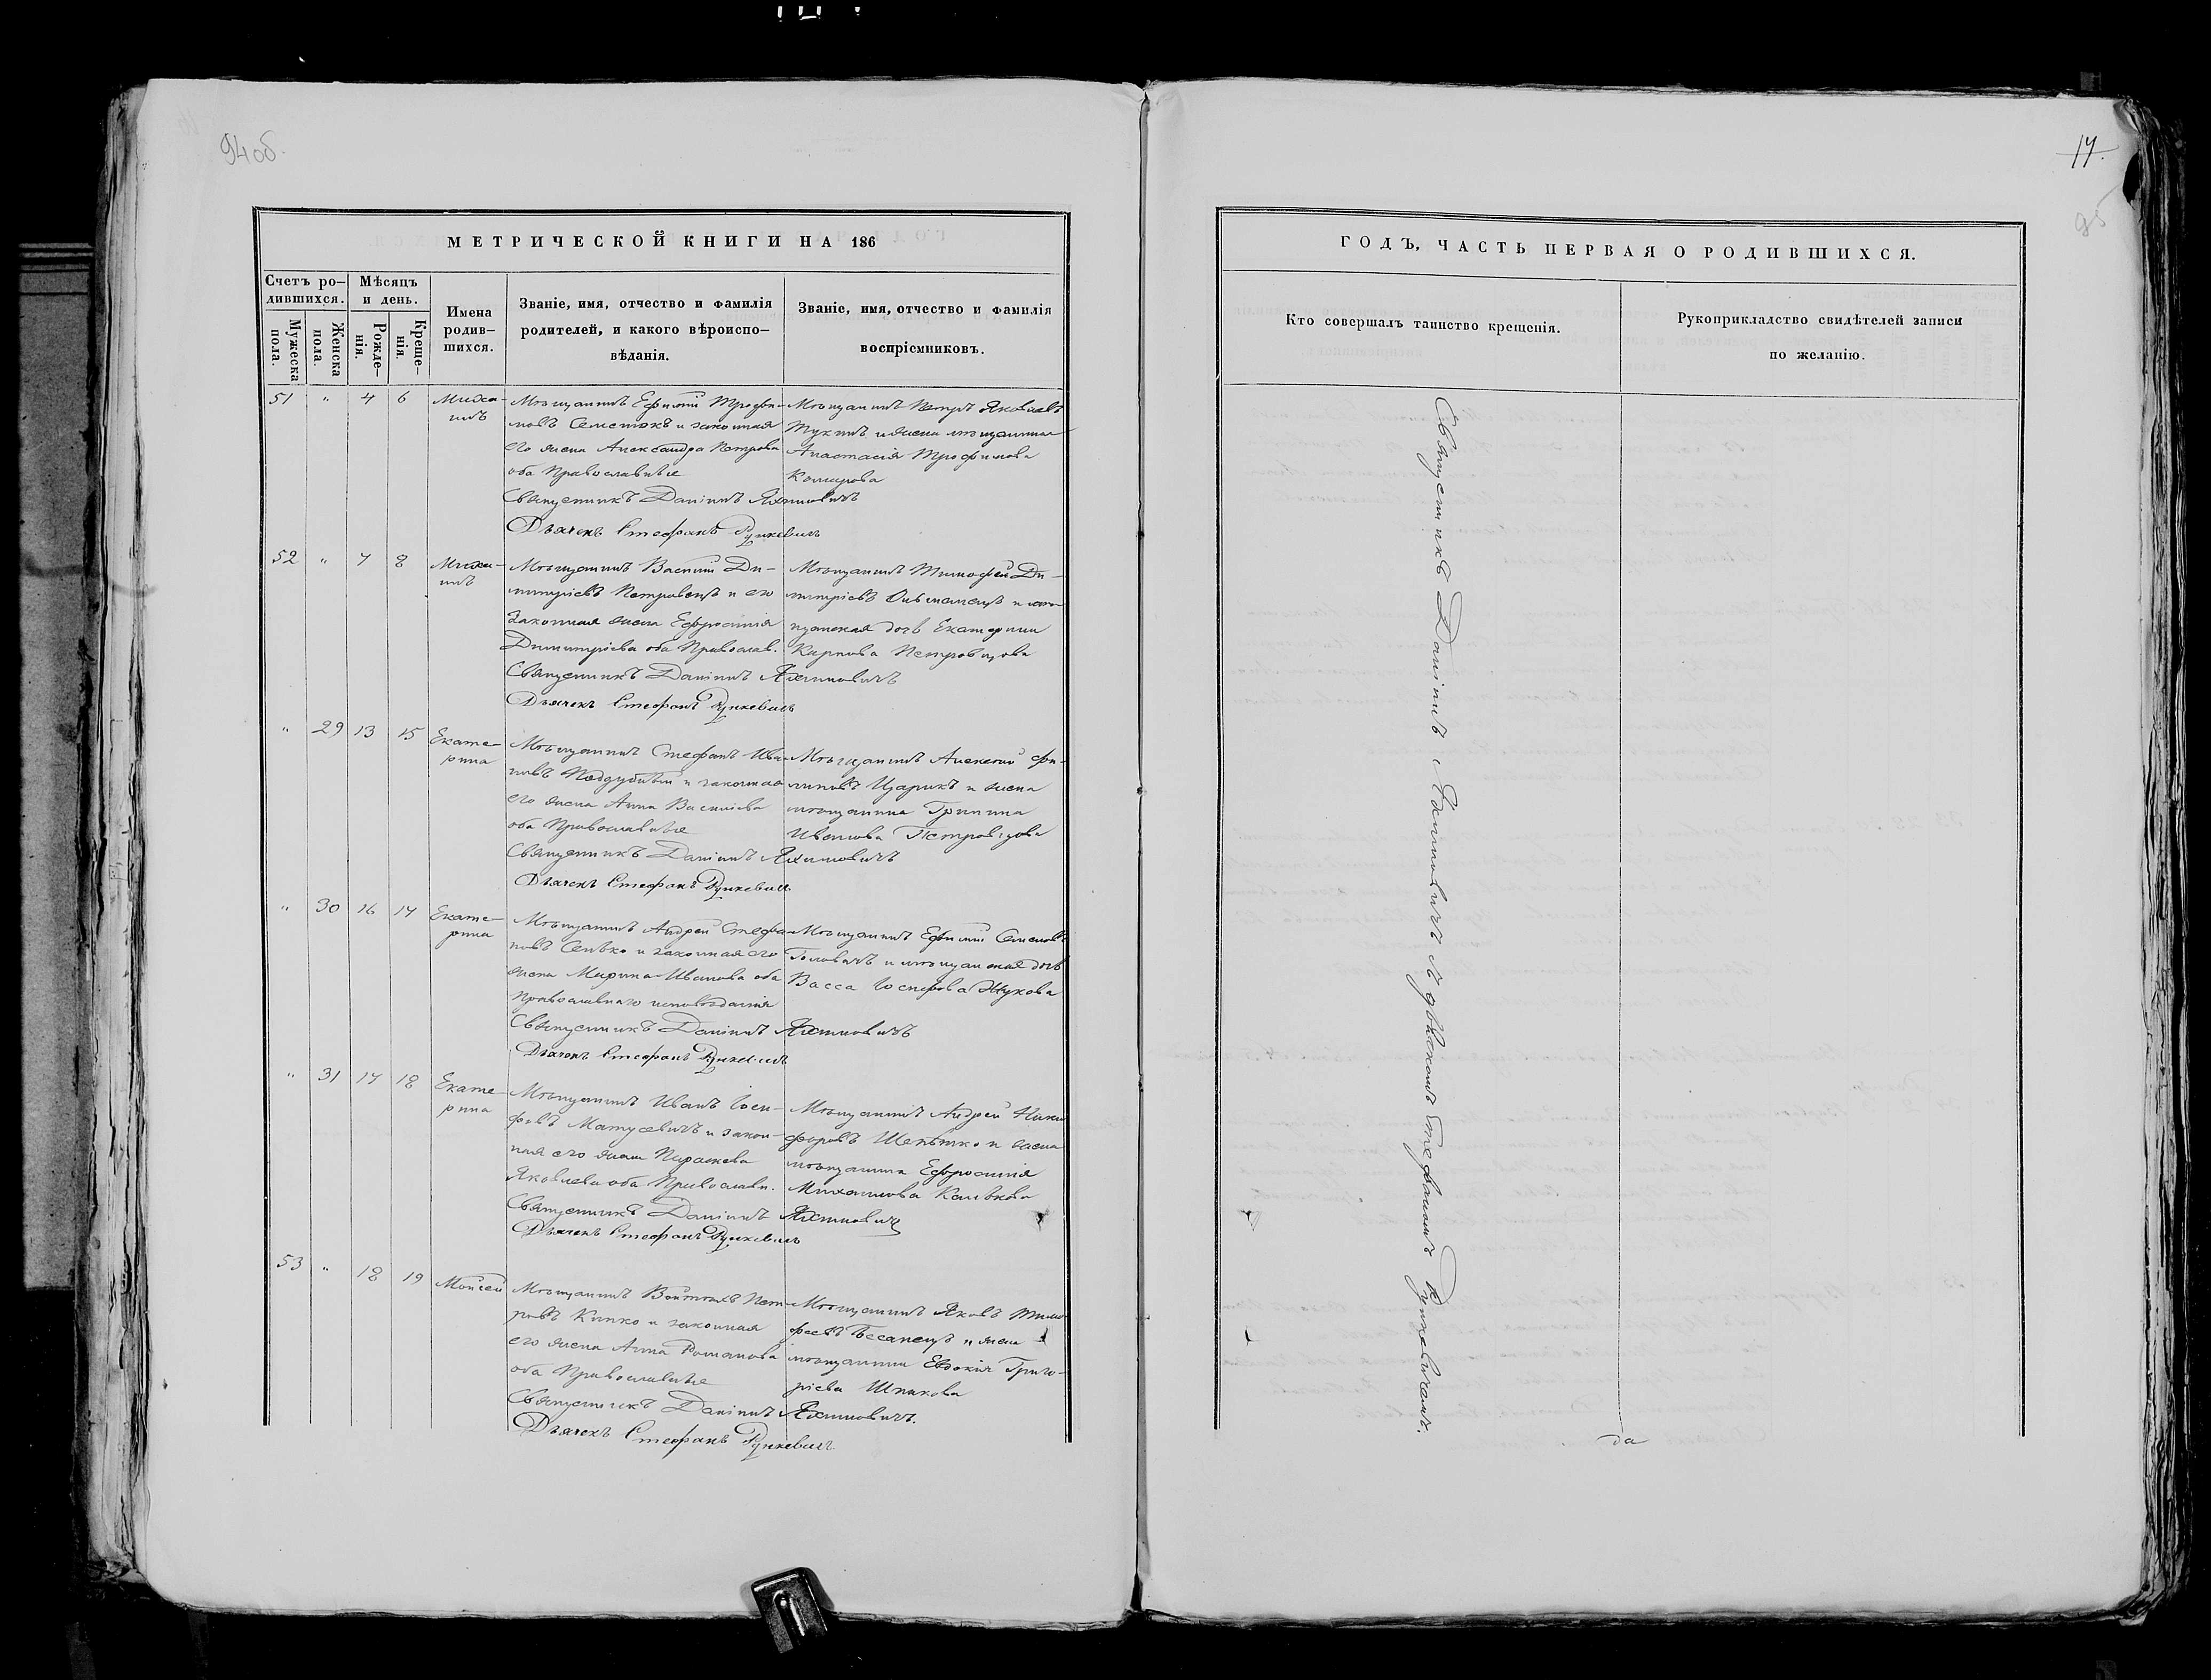 94 об.
МЕТРИЧЕСКОЙ КНИГИ НА 186
Счетъ ро-
дившихся.
Мужеска
пола.
Женска
пола.
Мѣсяцъ
и день.
Рожде-
нія.
Креще-
нія.
Имена
родив-
шихся.
Званіе, имя, отчество и фамилія
родителей, и какого вѣроиспо-
вѣданія.
Званіе, имя, отчество и фамилія
воспріемниковъ.
51 " 4 6
Миха-
илъ
Мѣщанинъ Ефимій Трофи-
мовъ и законная
его жена Александра Петрова
оба Православные
Священникъ Даніилъ Яхимовичъ
Дьячекъ Стефанъ Рункевичъ
Мѣщанинъ Петръ Яковлевъ
и жена мѣщанина
Анастасія Трофимова
Комарова
52 " 7 8
Миха-
илъ
Мѣщанинъ Василій Ди-
митріевъ Петровецъ и его
законная жена Ефросинія
Димитріева оба Православ.
Священникъ Даніилъ Яхимовичъ
Дьячекъ Стефанъ Рункевичъ
Мѣщанинъ Тимофей Ди-
митріевъ и мѣ-
щанская дочь Екатерина
Карпова Петровцова
" 29 13 15
Екате-
рина
Мѣщанинъ Стефанъ Ива-
новъ Поддубный и законная
его жена Анна Василіева
оба Православные
Священникъ Даніилъ Яхимовичъ
Дьячекъ Стефанъ Рункевичъ
Мѣщанинъ Алексѣй Фи-
липовъ Царикъ и жена
мѣщанина Грипина
Иванова Петровцова
" 30 16 17
Екате-
рина
Мѣщанинъ Андрей Стефа-
новъ Сенько и законная его
жена Марина Иванова оба
Православнаго исповѣданія
Священникъ Даніилъ Яхимовичъ
Дьячекъ Стефанъ Рункевичъ
Мѣщанинъ Ефимій Семеновъ
Головачъ и мѣщанская дочь
Васса Іосифова Жукова
" 31 17 18
Екате-
рина
Мѣщанинъ Иванъ Іоси-
фовъ Матусевичъ и закон-
ная его жена Параскева
Яковлева оба Православн.
Священникъ Даніилъ Яхимовичъ
Дьячекъ Стефанъ Рункевичъ
Мѣщанинъ Андрей Ники-
форовъ и жена
мѣщанина Ефросинія
Михаилова
53 " 18 19
Моисей
Мѣщанинъ Пет-
ровъ и законная
его жена Анна Романова
оба Православные
Священникъ Даніилъ Яхимовичъ.
Дьячекъ Стефанъ Рункевичъ
Мѣщанинъ Яковъ Тимо-
феевъ и жена
мѣщанина Евдокія Григо-
ріева
17.
95
ГОДЪ, ЧАСТЬ ПЕРВАЯ О РОДИВШИХСЯ.
Кто совершалъ таинство крещенія.
Рукоприкладство свидѣтелей записи
по желанію.
Священникъ Даніилъ Яхимовичъ съ дьячкомъ Стефаномъ Рункевичемъ.
да